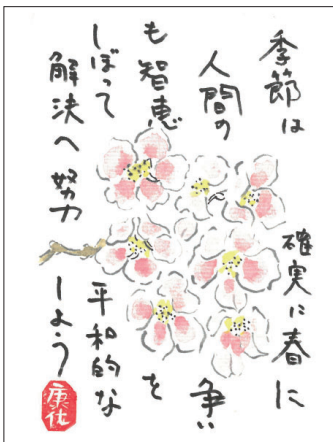 季節は 確実に春に
人間の 争い
も智恵 を
しぼって 平和的な
解決へ努力 しよう